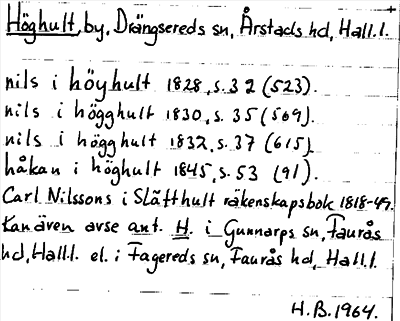 Höghult, by, Drängsereds sn, Årstads hd, Hall.l.
nils i höyhult 1828, s. 32 (523).
nils i högghult 1830, s. 35 (569).
nils i högghult 1832, s. 37 (615).
håkan i höghult 1845, s. 53 (91).
Carl Nilssons i Slätthult räkenskapsbok 1818-49.
Kan även avse ant. H. i Gunnarps sn, Faurås
hd, Hall.l. el. i Fagereds sn, Faurås hd, Hall.l.
H.B. 1964.